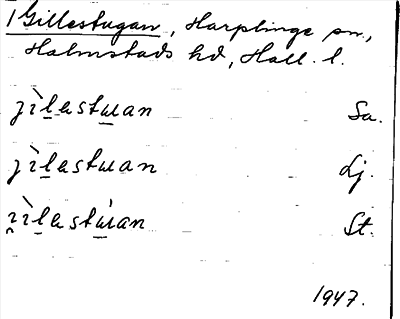 1 Gillestugan, Harplinge sn,
Halmstads hd, Hall. l.
jìlastuan Sa.
jìlastuan Lj.
i̯ìlastúan St.
1947.